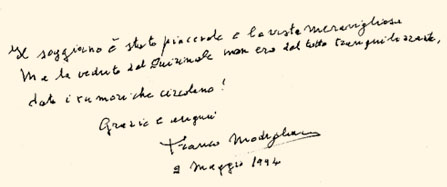 Il soggiorno è stato piacevole e la vista meravigliosa
Ma la veduta dal Quirinale non era del tutto tranquillizzante,
dati i rumori che circolano!
Grazie e auguri
Franco Modigliani
2 Maggio 1994